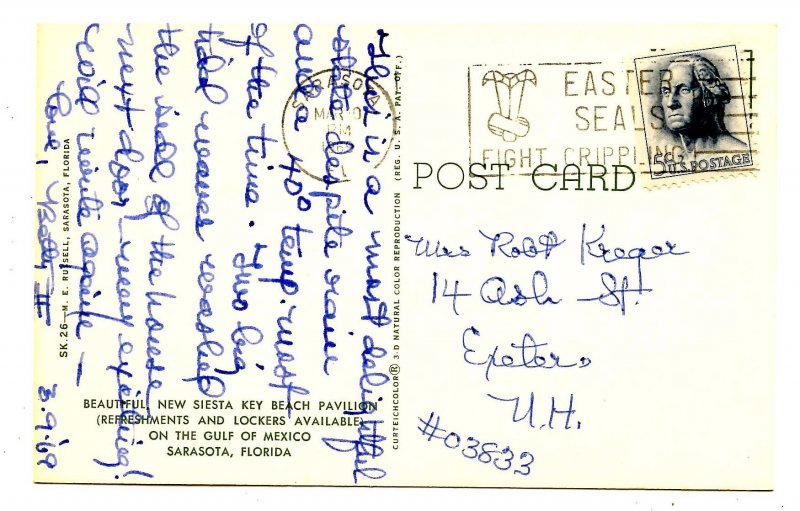 This is a most delightful
state despite rain
and a 40° temp. most
of the time. Two big
tidal waves washed
the wall of the house
next door - very exciting!
Will write again -
Love, Betty II
3.9.69
SK.26—M. E. RUSSELL, SARASOTA, FLORIDA
BEAUTIFUL, NEW SIESTA KEY BEACH PAVILION
(REFRESHMENTS AND LOCKERS AVAILABLE)
ON THE GULF OF MEXICO
SARASOTA, FLORIDA
CURTEICHCOLOR® 3-D NATURAL COLOR REPRODUCTION (REG. U. S. A. PAT. OFF.)
SARASOTA
MAR 10
EASTER
SEALS
FIGHT CRIPPLING
5¢ U.S. POSTAGE
POST CARD
Mrs Robt Kregor
14 Ash St.
Exeter,
N.H.
#03833